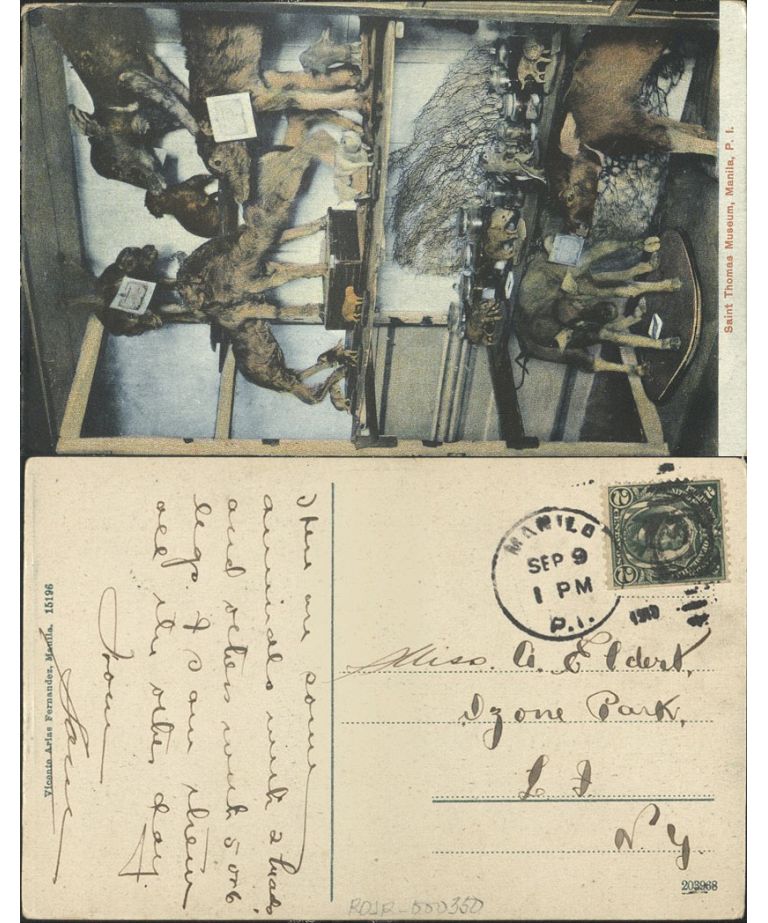 Saint Thomas Museum, Manila, P. I.
There are some
animals with 2 heads
and others with 5 or 6
legs. I saw them
all the other day.
From
Vicente Arias Fernandez, Manila. 15196
MANILA
SEP 9
1 PM
P.I.
1910
Miss. A. Eldert,
Ozone Park,
L I
N. Y.
203968